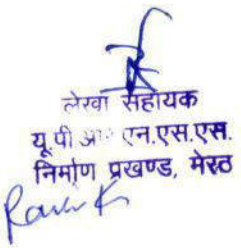 लेखा सहायक
यू.पी आर एन.एस.एस.
निर्माण प्रखण्ड, मेरठ